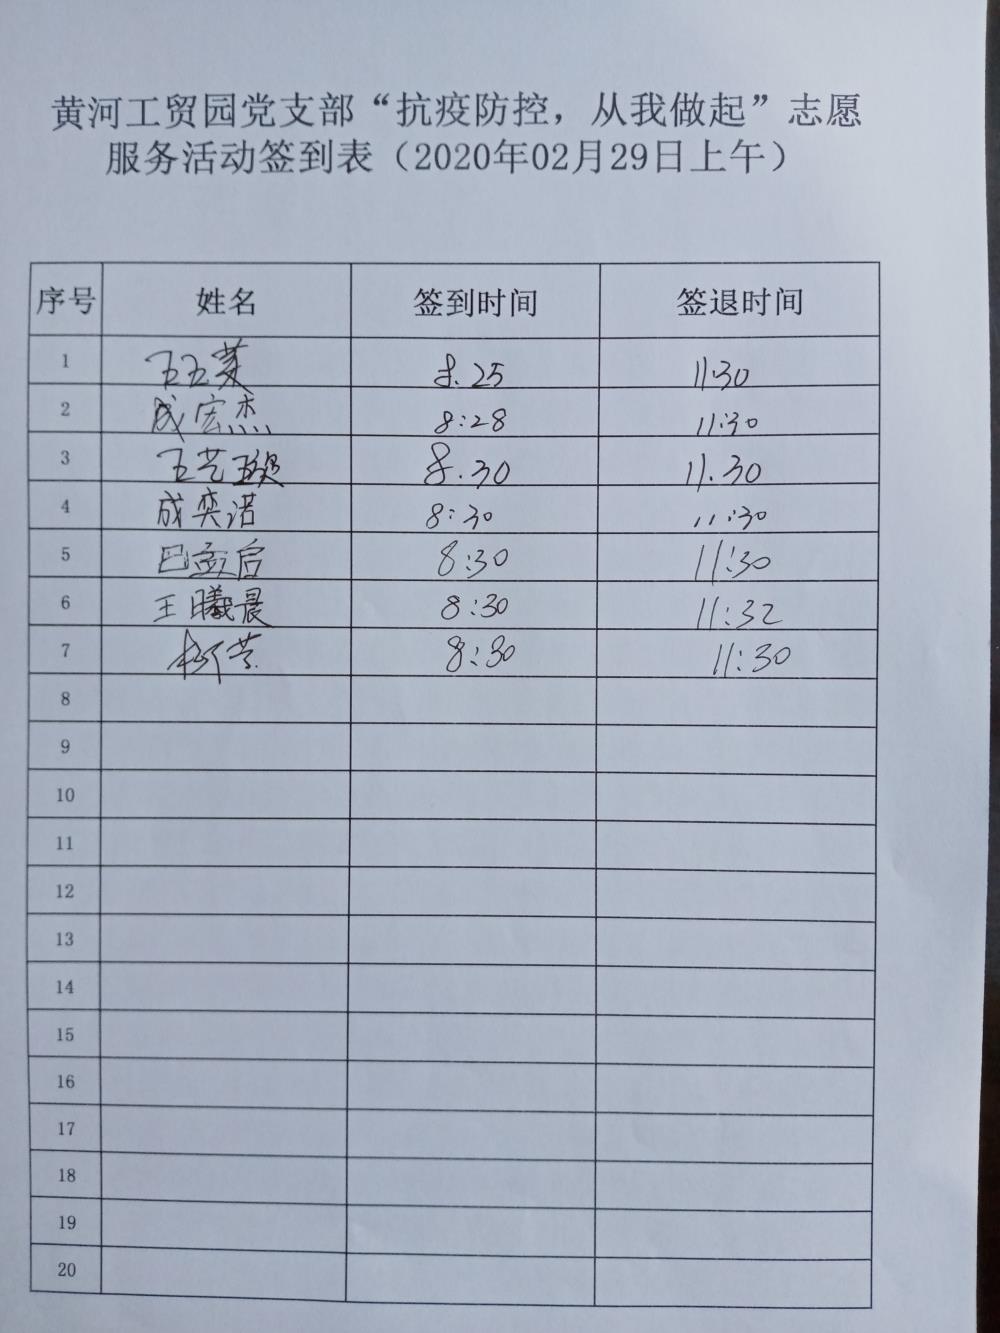 黄河工贸园党支部“抗疫防控，从我做起”志愿
服务活动签到表（2020年02月29日上午）
序号 姓名 签到时间 签退时间
1 8.25 11:30
2 成宏杰 8:28 11:30
3 王艺璇 8.30 11.30
4 成奕诺 8:30 11:30
5 8:30 11:30
6 王曦晨 8:30 11:32
7 柳芸 8:30 11:30
8
9
10
11
12
13
14
15
16
17
18
19
20